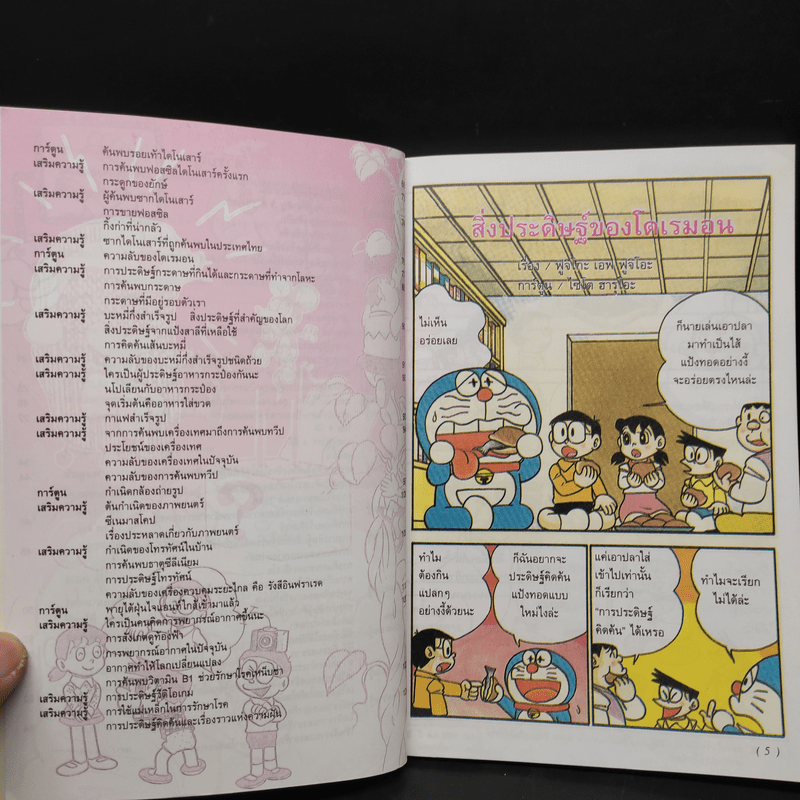 การ์ตูน ค้นพบรอยเท้าไดโนเสาร์
เสริมความรู้ การค้นพบฟอสซิลไดโนเสาร์ครั้งแรก
กระดูกของยักษ์
เสริมความรู้ ผู้ค้นพบซากไดโนเสาร์
การขายฟอสซิล
กิ้งก่าที่น่ากลัว
เสริมความรู้ ซากไดโนเสาร์ที่ถูกค้นพบในประเทศไทย
การ์ตูน ความลับของโดเรมอน
เสริมความรู้ การประดิษฐ์กระดาษที่กินได้และกระดาษที่ทำจากโลหะ
การค้นพบกระดาษ
กระดาษที่มีอยู่รอบตัวเรา
เสริมความรู้ บะหมี่กึ่งสำเร็จรูป สิ่งประดิษฐ์ที่สำคัญของโลก
สิ่งประดิษฐ์จากแป้งสาลีที่เหลือใช้
การคิดค้นเส้นบะหมี่
เสริมความรู้ ความลับของบะหมี่กึ่งสำเร็จรูปชนิดถ้วย
เสริมความรู้ ใครเป็นผู้ประดิษฐ์อาหารกระป๋องกันนะ
นโปเลียนกับอาหารกระป๋อง
จุดเริ่มต้นคืออาหารใส่ขวด
เสริมความรู้ กาแฟสำเร็จรูป
เสริมความรู้ จากการค้นพบเครื่องเทศมาถึงการค้นพบทวีป
ประโยชน์ของเครื่องเทศ
ความลับของเครื่องเทศในปัจจุบัน
ความลับของการค้นพบทวีป
การ์ตูน กำเนิดกล้องถ่ายรูป
เสริมความรู้ ต้นกำเนิดของภาพยนตร์
ซีเนมาสโคป
เรื่องประหลาดเกี่ยวกับภาพยนตร์
เสริมความรู้ กำเนิดของโทรทัศน์ในบ้าน
การค้นพบธาตุซีลีเนียม
การประดิษฐ์โทรทัศน์
ความลับของเครื่องควบคุมระยะไกล คือ รังสีอินฟราเรด
การ์ตูน พายุไต้ฝุ่นใจแอนท์ใกล้เข้ามาแล้ว
เสริมความรู้ ใครเป็นคนคิดการพยากรณ์อากาศขึ้นนะ
การสังเกตดูท้องฟ้า
การพยากรณ์อากาศในปัจจุบัน
อากาศทำให้โลกเปลี่ยนแปลง
การค้นพบวิตามิน B1 ช่วยรักษาโรคเหน็บชา
เสริมความรู้ การประดิษฐ์วีดีโอเกม
เสริมความรู้ การใช้แม่เหล็กในการรักษาโรค
การประดิษฐ์คิดค้นและเรื่องราวแห่งความฝัน
สิ่งประดิษฐ์ของโดเรมอน
เรื่อง / ฟูจิโกะ เอฟ ฟูจิโอะ
การ์ตูน / ไซโต ฮารุโอะ
ไม่เห็น
อร่อยเลย
ก็นายเล่นเอาปลา
มาทำเป็นไส้
แป้งทอดอย่างงี้
จะอร่อยตรงไหนล่ะ
ทำไม
ต้องกิน
แปลกๆ
อย่างงี้ด้วยนะ
ก็ฉันอยากจะ
ประดิษฐ์คิดค้น
แป้งทอดแบบ
ใหม่ไงล่ะ
แค่เอาปลาใส่
เข้าไปเท่านั้น
ก็เรียกว่า
"การประดิษฐ์
คิดค้น" ได้เหรอ
ทำไมจะเรียก
ไม่ได้ล่ะ
( 5 )